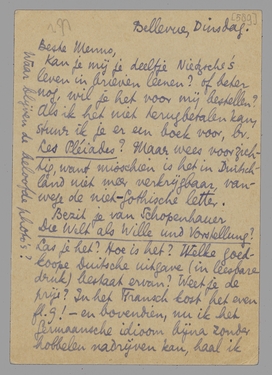 [589]
Bellevue, Dinsdag.
Beste Menno,
Kan je mij je deeltje Nietzsche's
leven in brieven leenen? of beter
nog, wil je het voor mij bestellen?
Als ik het niet terugbetalen kan,
stuur ik je er een boek voor, bv.
Les Pléiades? Maar wees voorzich-
tig, want misschien is het in Duitsch-
land niet meer verkrijgbaar, van-
wege de niet-gothische letter.
Bezit je van Schopenhauer
Die Welt als Wille und Vorstellung?
Las je het? Hoe is het? Welke goed-
koope Duitsche uitgave (in leesbare
druk) bestaat ervan? Weet je de
prijs? In het Fransch kost het even
fl. 9! - en bovendien, nu ik het
Germaansche idioom bijna zonder
hobbelen nadrijven kan, haal ik
Waar blijven de beloofde photo's?